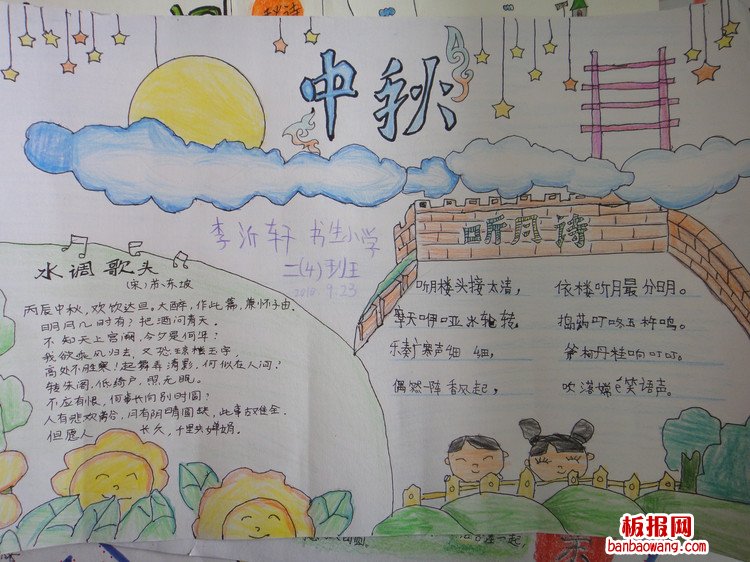 中秋
李沂轩 书生小学
二(4)班
2010 9.23
水调歌头
(宋)苏东坡
丙辰中秋,欢饮达旦。大醉,作此篇,兼怀子由。
明月几时有?把酒问青天。
不知天上宫阙,今夕是何年?
我欲乘风归去,又恐琼楼玉宇,
高处不胜寒!起舞弄清影,何似在人间?
转朱阁,低绮户,照无眠。
不应有恨,何事长向别时圆?
人有悲欢离合,月有阴晴圆缺,此事古难全。
但愿人 长久,千里共婵娟。
听月诗
听月楼头接太清, 依楼听月最分明。
摩天咿哑冰轮转, 捣药叮咚玉杵鸣。
乐奏广寒声细 细, 斧柯丹桂响叮叮。
偶然一阵香风起, 吹落嫦 笑语声。
板报网
banbaowang.com